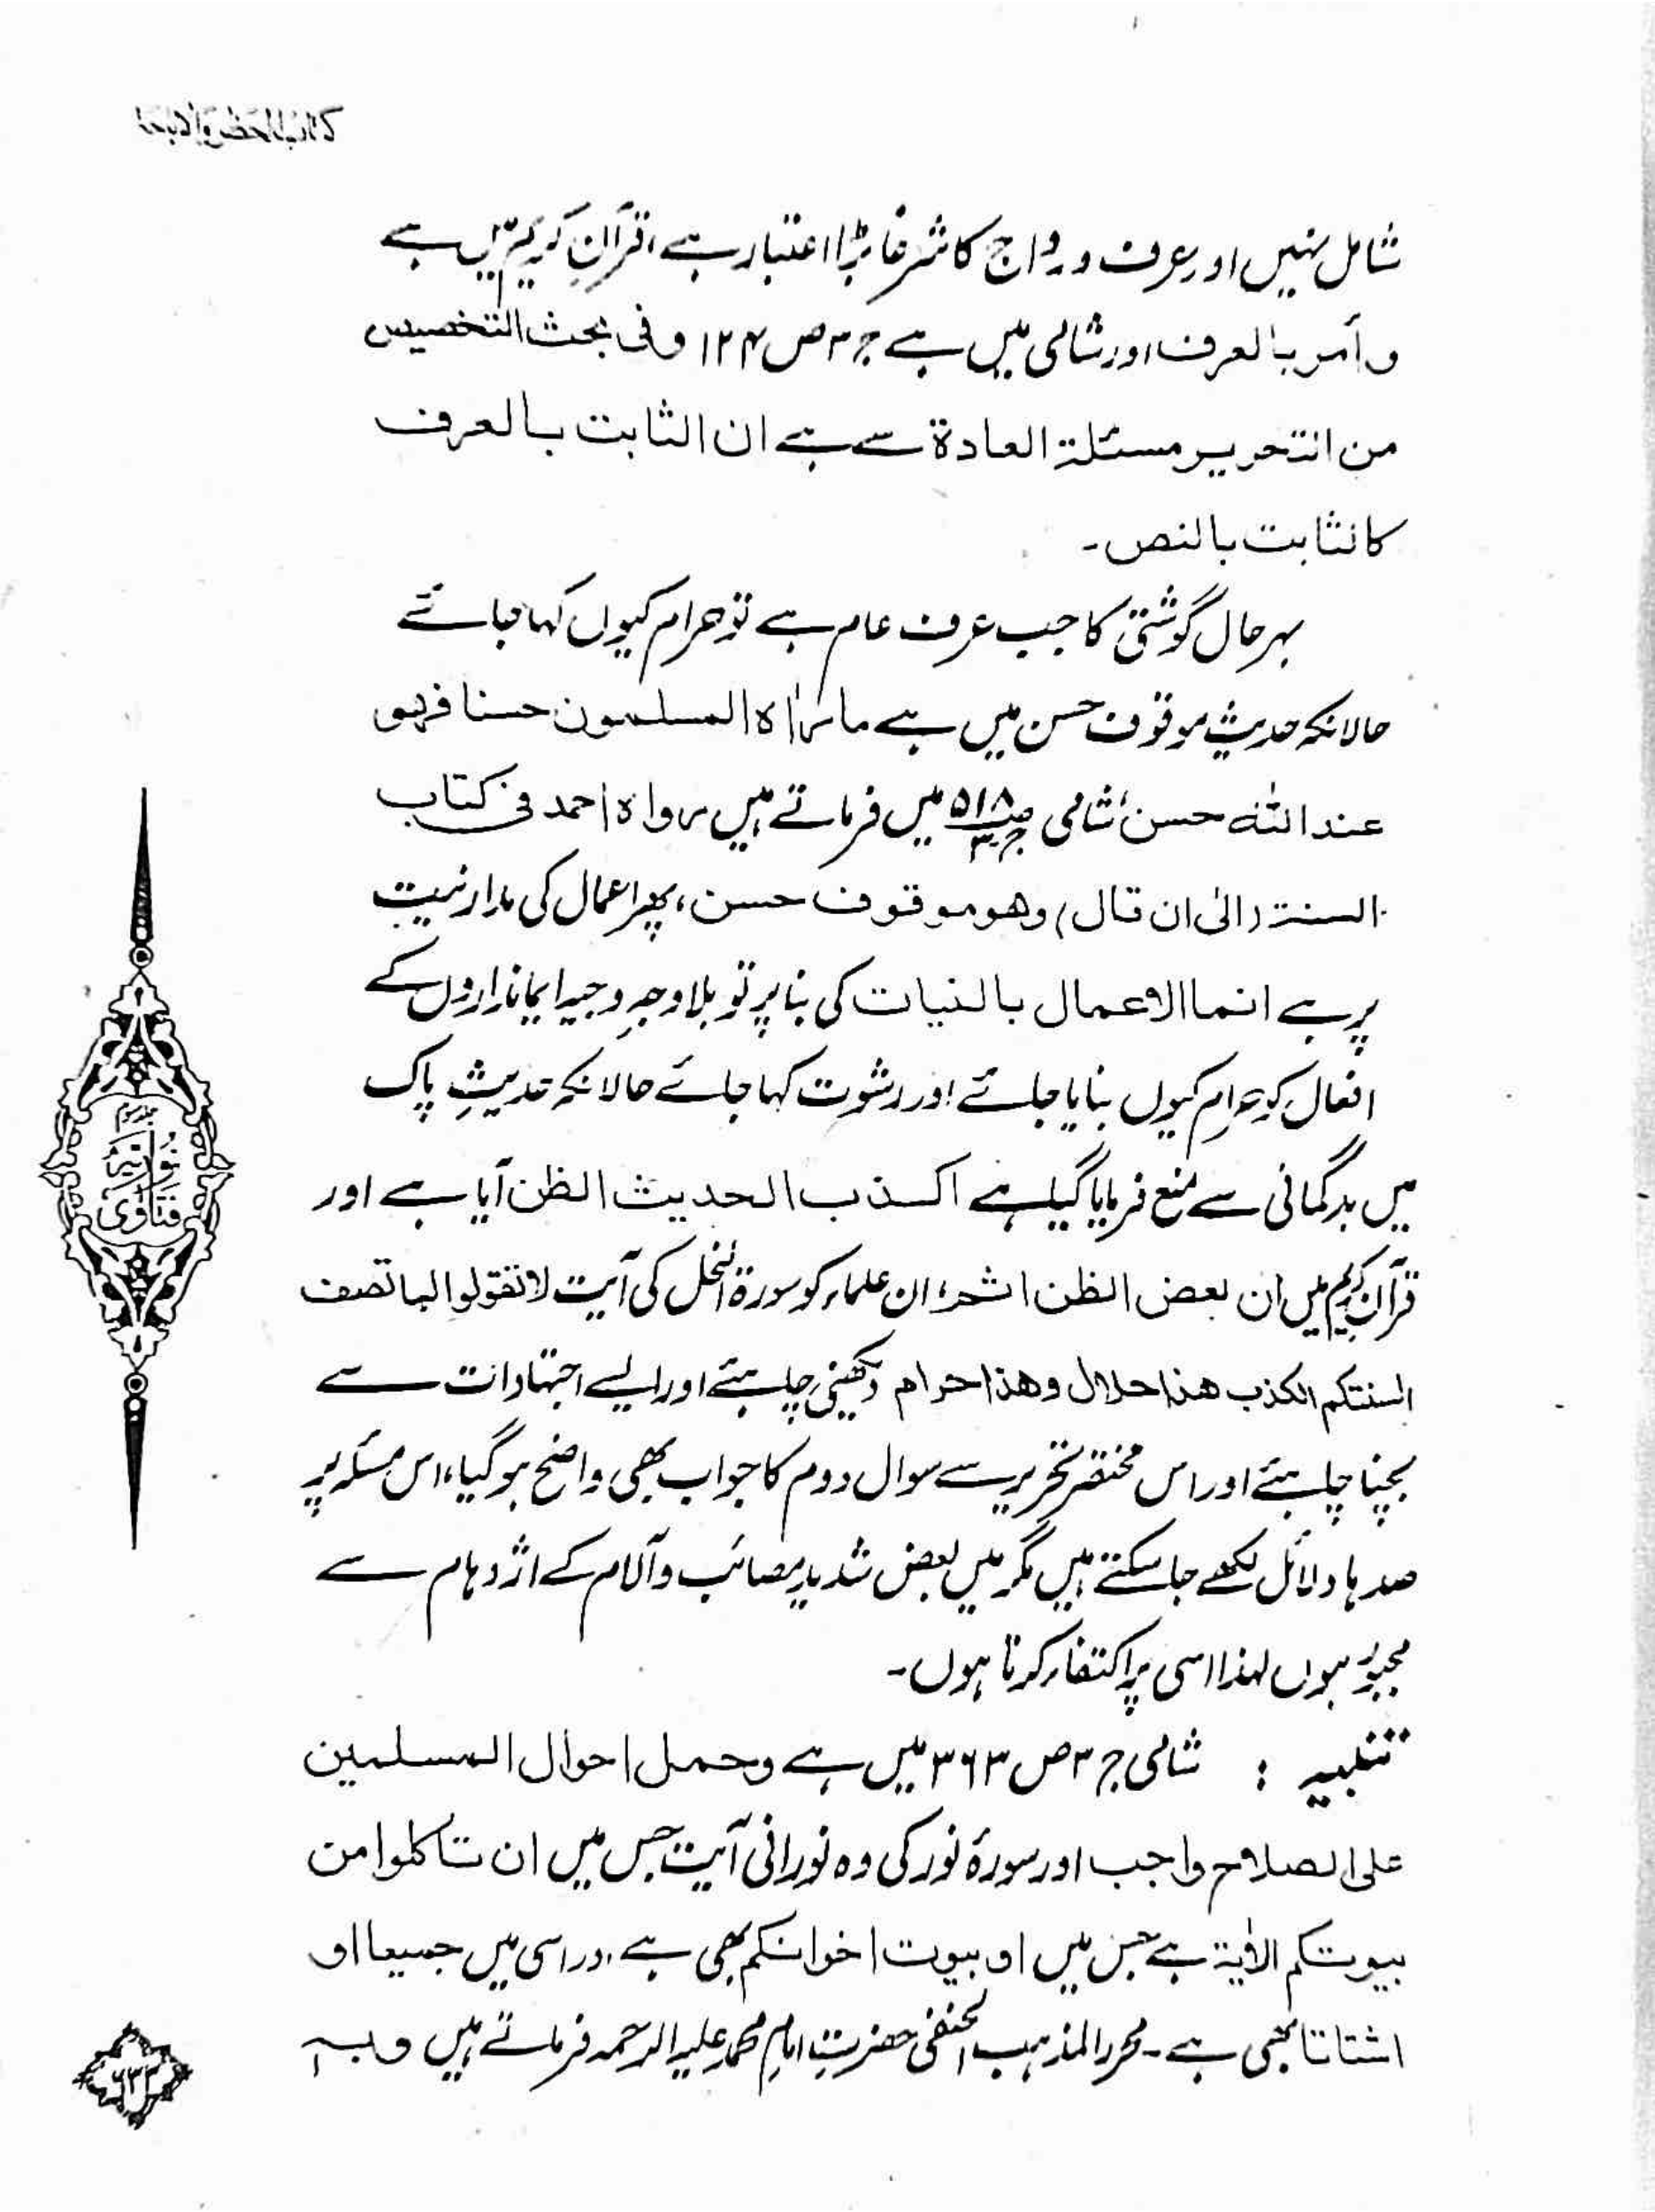 کتاب الحظر والاباحة
شامل نہیں اور عرف و رواج کا شرعاً بڑا اعتبار ہے، قرآنِ کریم میں ہے
وأمر بالعرف اور شامی میں ہے ج ۳ ص ۱۲۴ وفی بحث التخصیص
من التحریر مسئلة العادة سے ہے ان الثابت بالعرف
کالثابت بالنص۔
بہرحال گوشتیٔ کا جب عرف عام ہے تو حرام کیوں کہا جائے
حالانکہ حدیثِ موقوف حسن میں ہے ما رأہ المسلمون حسنا فھو
عند اللہ حسن، شامی ص۵۱۸ ج۳ میں فرماتے ہیں رواہ احمد فی کتاب
السنة (الیٰ ان قال) وھو موقوف حسن، پھر اعمال کی مدار نیت
پر ہے انما الاعمال بالنیات کی بنا پر تو بلا وجہِ وجیہ ایمانداروں کے
افعال کو حرام کیوں بنایا جائے اور رشوت کہا جائے حالانکہ حدیثِ پاک
میں بدگمانی سے منع فرمایا گیا ہے اکذب الحدیث الظن آیا ہے اور
قرآن کریم میں ان بعض الظن اثم، ان علماء کو سورة النحل کی آیت لا تقولوا لما تصف
السنتکم الکذب ھذا حلال وھذا حرام دیکھنی چاہئے اور ایسے اجتہادات سے
بچنا چاہئے اور اس مختصر تحریر سے سوال دوم کا جواب بھی واضح ہوگیا، اس مسئلہ پر
صدہا دلائل لکھے جا سکتے ہیں مگر میں بعض شدید مصائب و آلام کے اژدہام سے
مجبور ہوں لہٰذا اسی پر اکتفاء کرتا ہوں۔
تنبیہ : شامی ج ۳ ص ۳۶۳ میں ہے وحمل احوال المسلمین
علی الصلاح واجب اور سورۂ نور کی وہ نورانی آیت جس میں ان تاکلوا من
بیوتکم الاٰیة ہے جس میں او بیوت اخوانکم بھی ہے، اور اسی میں جمیعا او
اشتاتا بھی ہے۔ محرر المذہب الحنفی حضرتِ امام محمد علیہ الرحمہ فرماتے ہیں وبہ
فتاویٰ نوریہ
جلد سوم
۶۳۳